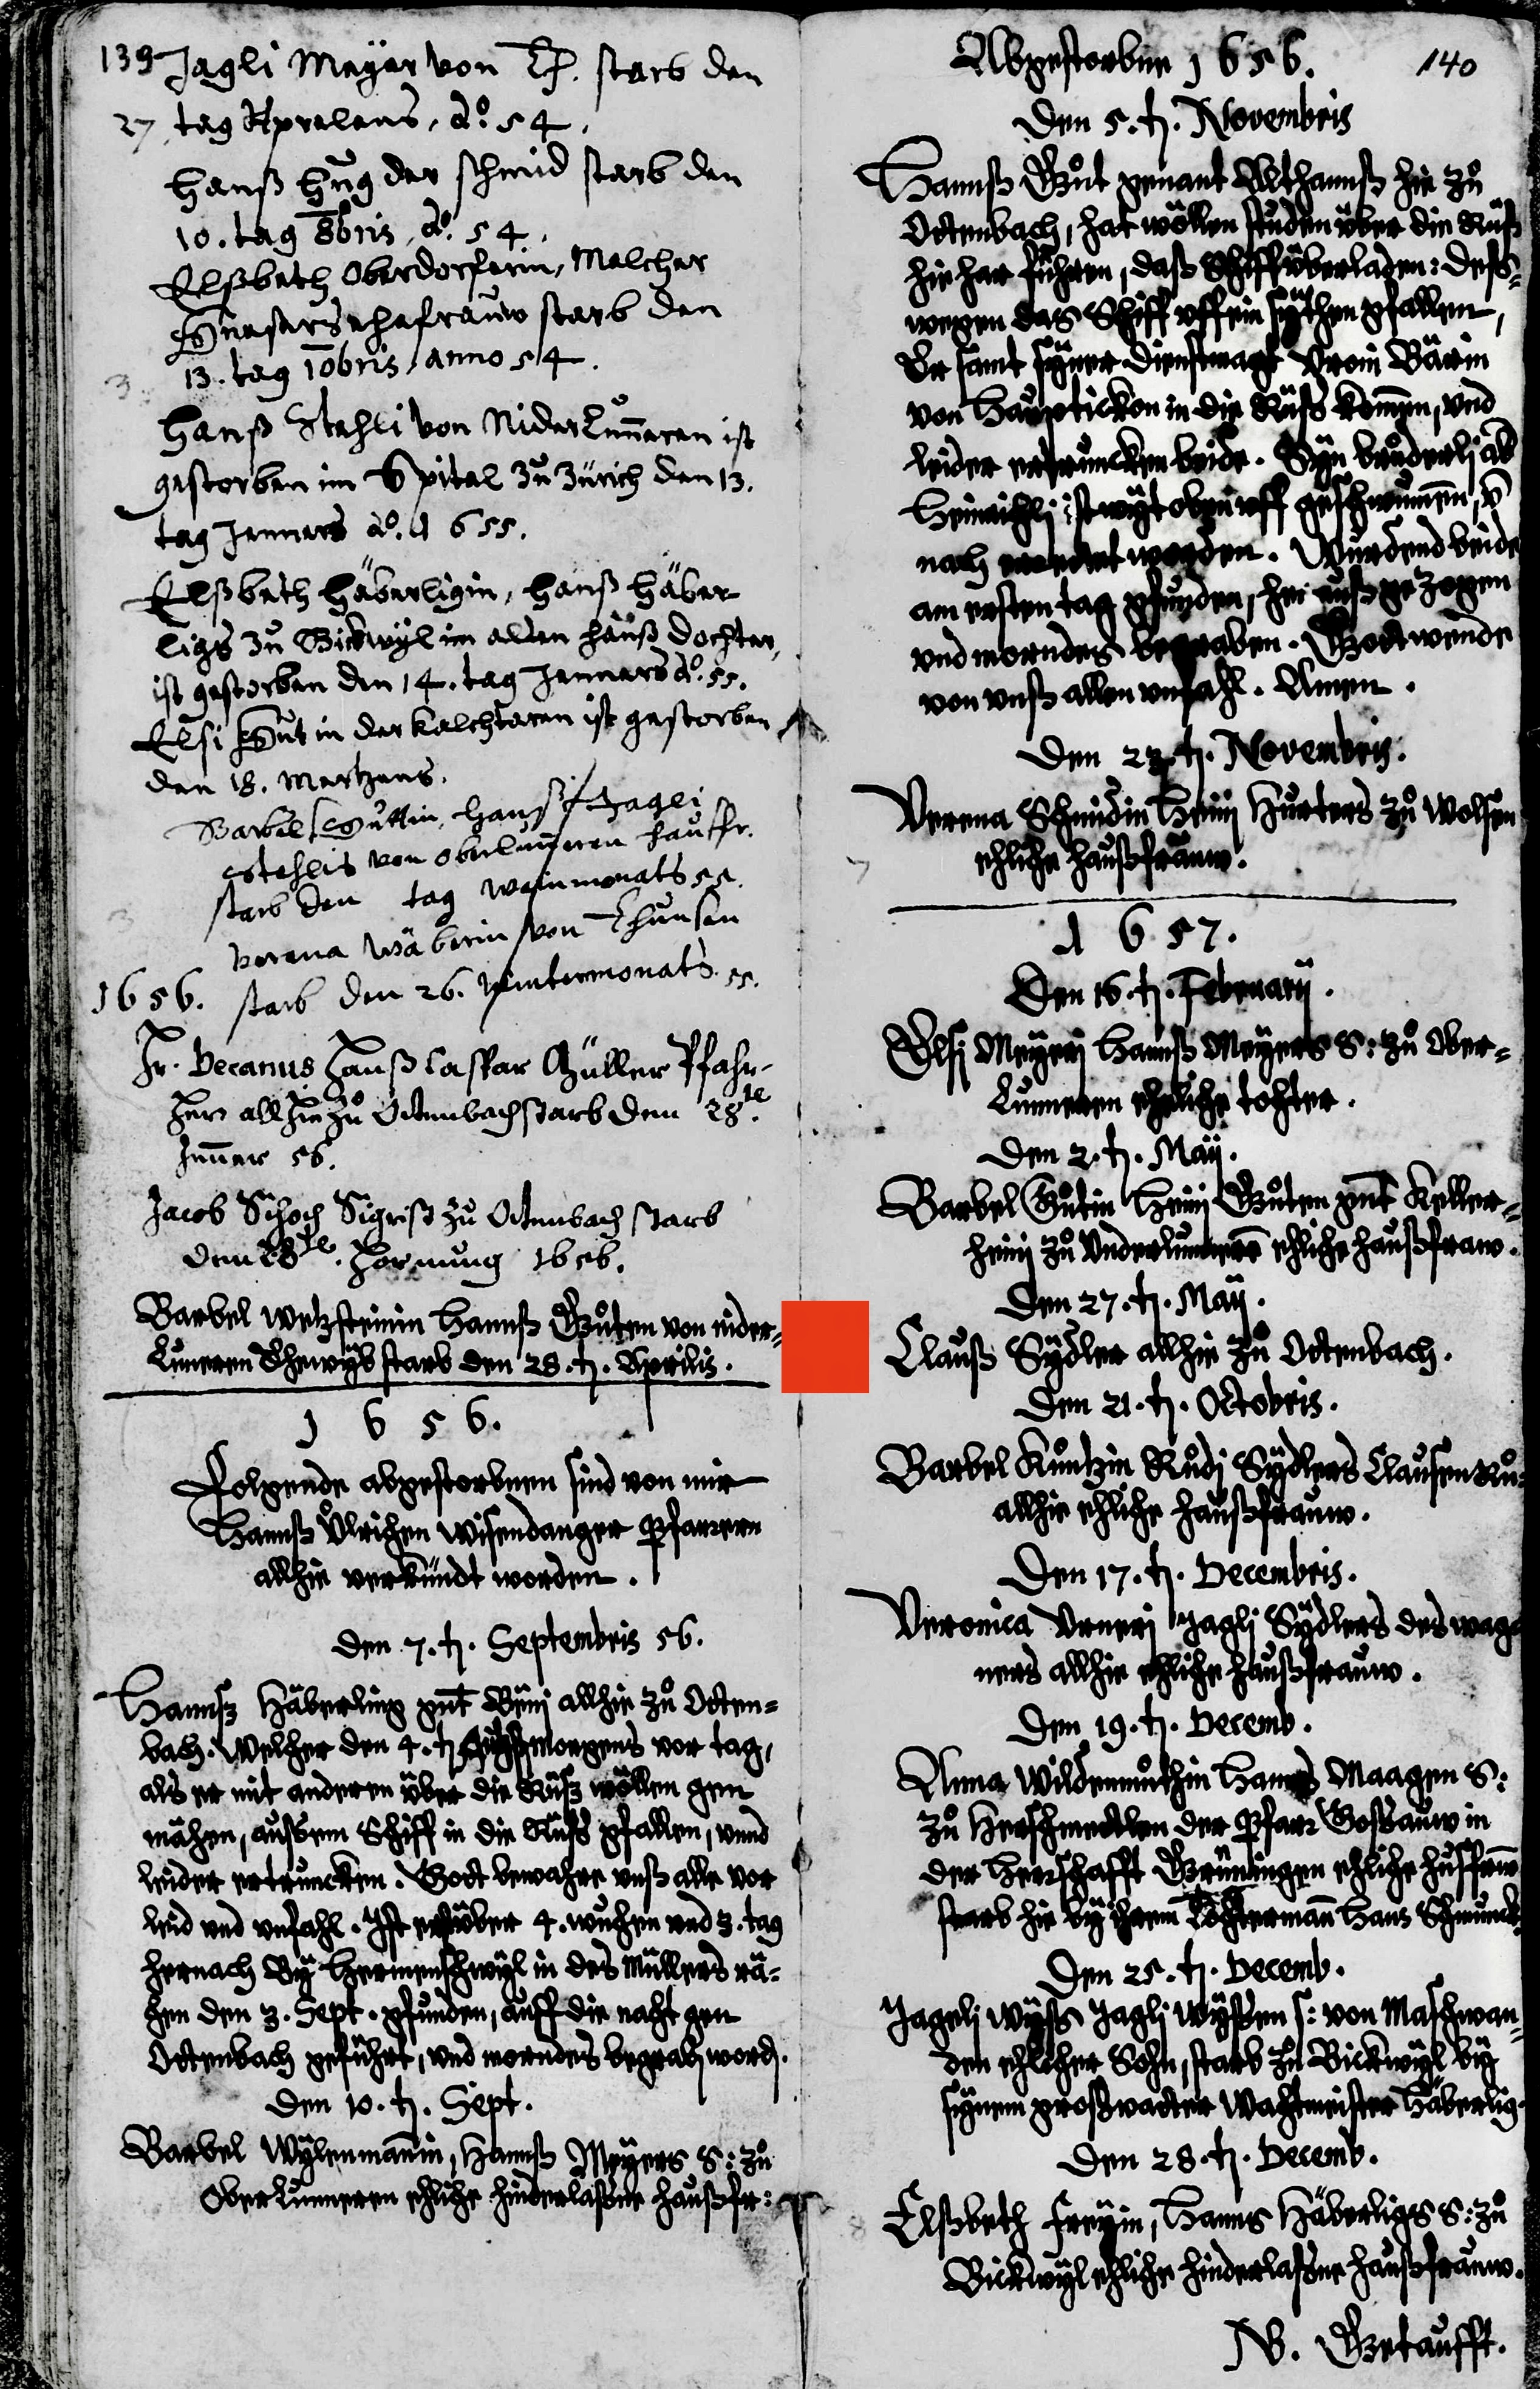 139 Jagli Meÿer von Th. starb den
27 tag Aprelens, do. 54.
Hanß Hug der schmid starb den
10. tag 8bris, do. 54.
Elßbeth Oberdorferin, Melcher
ehefrauw starb den
13. tag 10bris, anno 54.
Hanß Stehli von Niderlunneren ist
gestorben im Spital zu Zürich den 13.
tag Jenners do. 1655.
Elßbeth Häberligin, Hanß Häber
ligs zu Bickwÿl im alten hauß dochter,
ist gestorben den 14. tag Jenners do. 55.
Elsi Gut in der Kalchtaren ist gestorben
den 18. Mertzens.
Barbel Guttin, Hanß Jagli
Stehlis von Oberlunneren haußfr.
starb den tag Weinmonats 55.
Verena Wäberin von Thunsen
1656. starb den 26. Wintermonats 55.
Hr. Decanus Hanß Caspar Müller Pfahr-
herr allhie zu Ottenbach starb dem 28te.
Jenner 56.
Jacob Schoch Sigrist zu Ottenbach starb
dem 28te. Hornung 1656.
Barbel Wetzsteinin Hannß Guten von nider-
Luneren Ehewÿb starb den 28. t. Aprilis.
1656.
Folgende abgestorbnen sind von mir
Hannß Ulrichen Wisendanger Pfarrern
allhie verkündt worden.
Den 7. t. Septembris 56.
Hannß Häberling gnt Beni allhie zu Otten=
bach. Welcher den 4. t morgens vor tag,
als er mit anderen über die Rüß wöllen gen
mähen, ausßem Schiff in die Rüß gfallen, unnd
leider ertruncken. Gott bewahre unß alle vor
leid und unfahl. Ist erst über 4. wuchen und 3. tag
hernach Bÿ Hermenschwÿl in des Müllers rä=
hen den 3. Sept. gfunden, auff die nacht gen
Ottenbach geführt, und morndes begrabē word.
Den 10. t. Sept.
Barbel Wÿlenmannin, Hannß Meÿers S: zu
Ober Lunneren ehliche hinderlaßne haußfr:
Abgestorbne 1656. 140
Den 5. t. Novembris
Hannß Gut genant Althannß hie zu
Ottenbach, hat wöllen studen über die Rüß
hie har führen, daß Schiff überladen: deß=
wegen das Schiff uff ein sÿthen gfallen,
Er samt sÿner dienstmagt Vroni Bärin
von Hauptickon in die Rüß kommen, und
leider ertruncken beide. Sÿn bruderli ab
Heinrichli ist wÿt oben uff geschwummen, v̄
nach errettet worden. Wurdend beide
am ersten tag gfunden, hie außgezogen
und morndes begraben. Gott wende
von unß allen unfahl. Amen.
Den 23. t. Novembris.
Verena Schmidin Heini Hurters zu Wolsen
ehliche haußfrauw.
1657.
Den 16. t. Februarÿ.
Elsi Meÿeri Hannß Meÿers S: zu Ober=
Lunneren ehliche tochter.
Den 2. t. Maÿ.
Barbel Gutin Heini Guten gnt Keller=
heini zu Underlunneren ehliche haußfraw.
Den 27. t. Maÿ.
Clauß Sÿdler allhie zu Ottenbach.
Den 21. t. Octobris.
Barbel Kuntzin Rudi Sÿdlers Clausen Ru=
allhie ehliche haußfrauw.
Den 17. t. Decembris.
Veronica Vreneri Jagli Sÿdlers des wag
ners allhie ehliche haußfrauw.
Den 19. t. Decemb.
Anna Wildenmuthin Hanns Maagen S:
zu Herschmettlen der Pfarr Goßauw in
der Herrschafft Grüningen ehliche hußfrauw
starb hie bÿ ihrem Tochtermann Hans Schmunck
Den 25. t. Decemb.
Jageli Wÿß Jagli Wÿßen S: von Maschwan
den ehlicher Sohn, starb zu Bickwÿl bÿ
sÿnem großvatter Wachtmeister Häberlig.
Den 28. t. Decemb.
Elßbeth Freÿin, Hanns Häberligs S: zu
Bickwÿl ehliche hinderlaßne haußfrauw.
N. Getaufft.